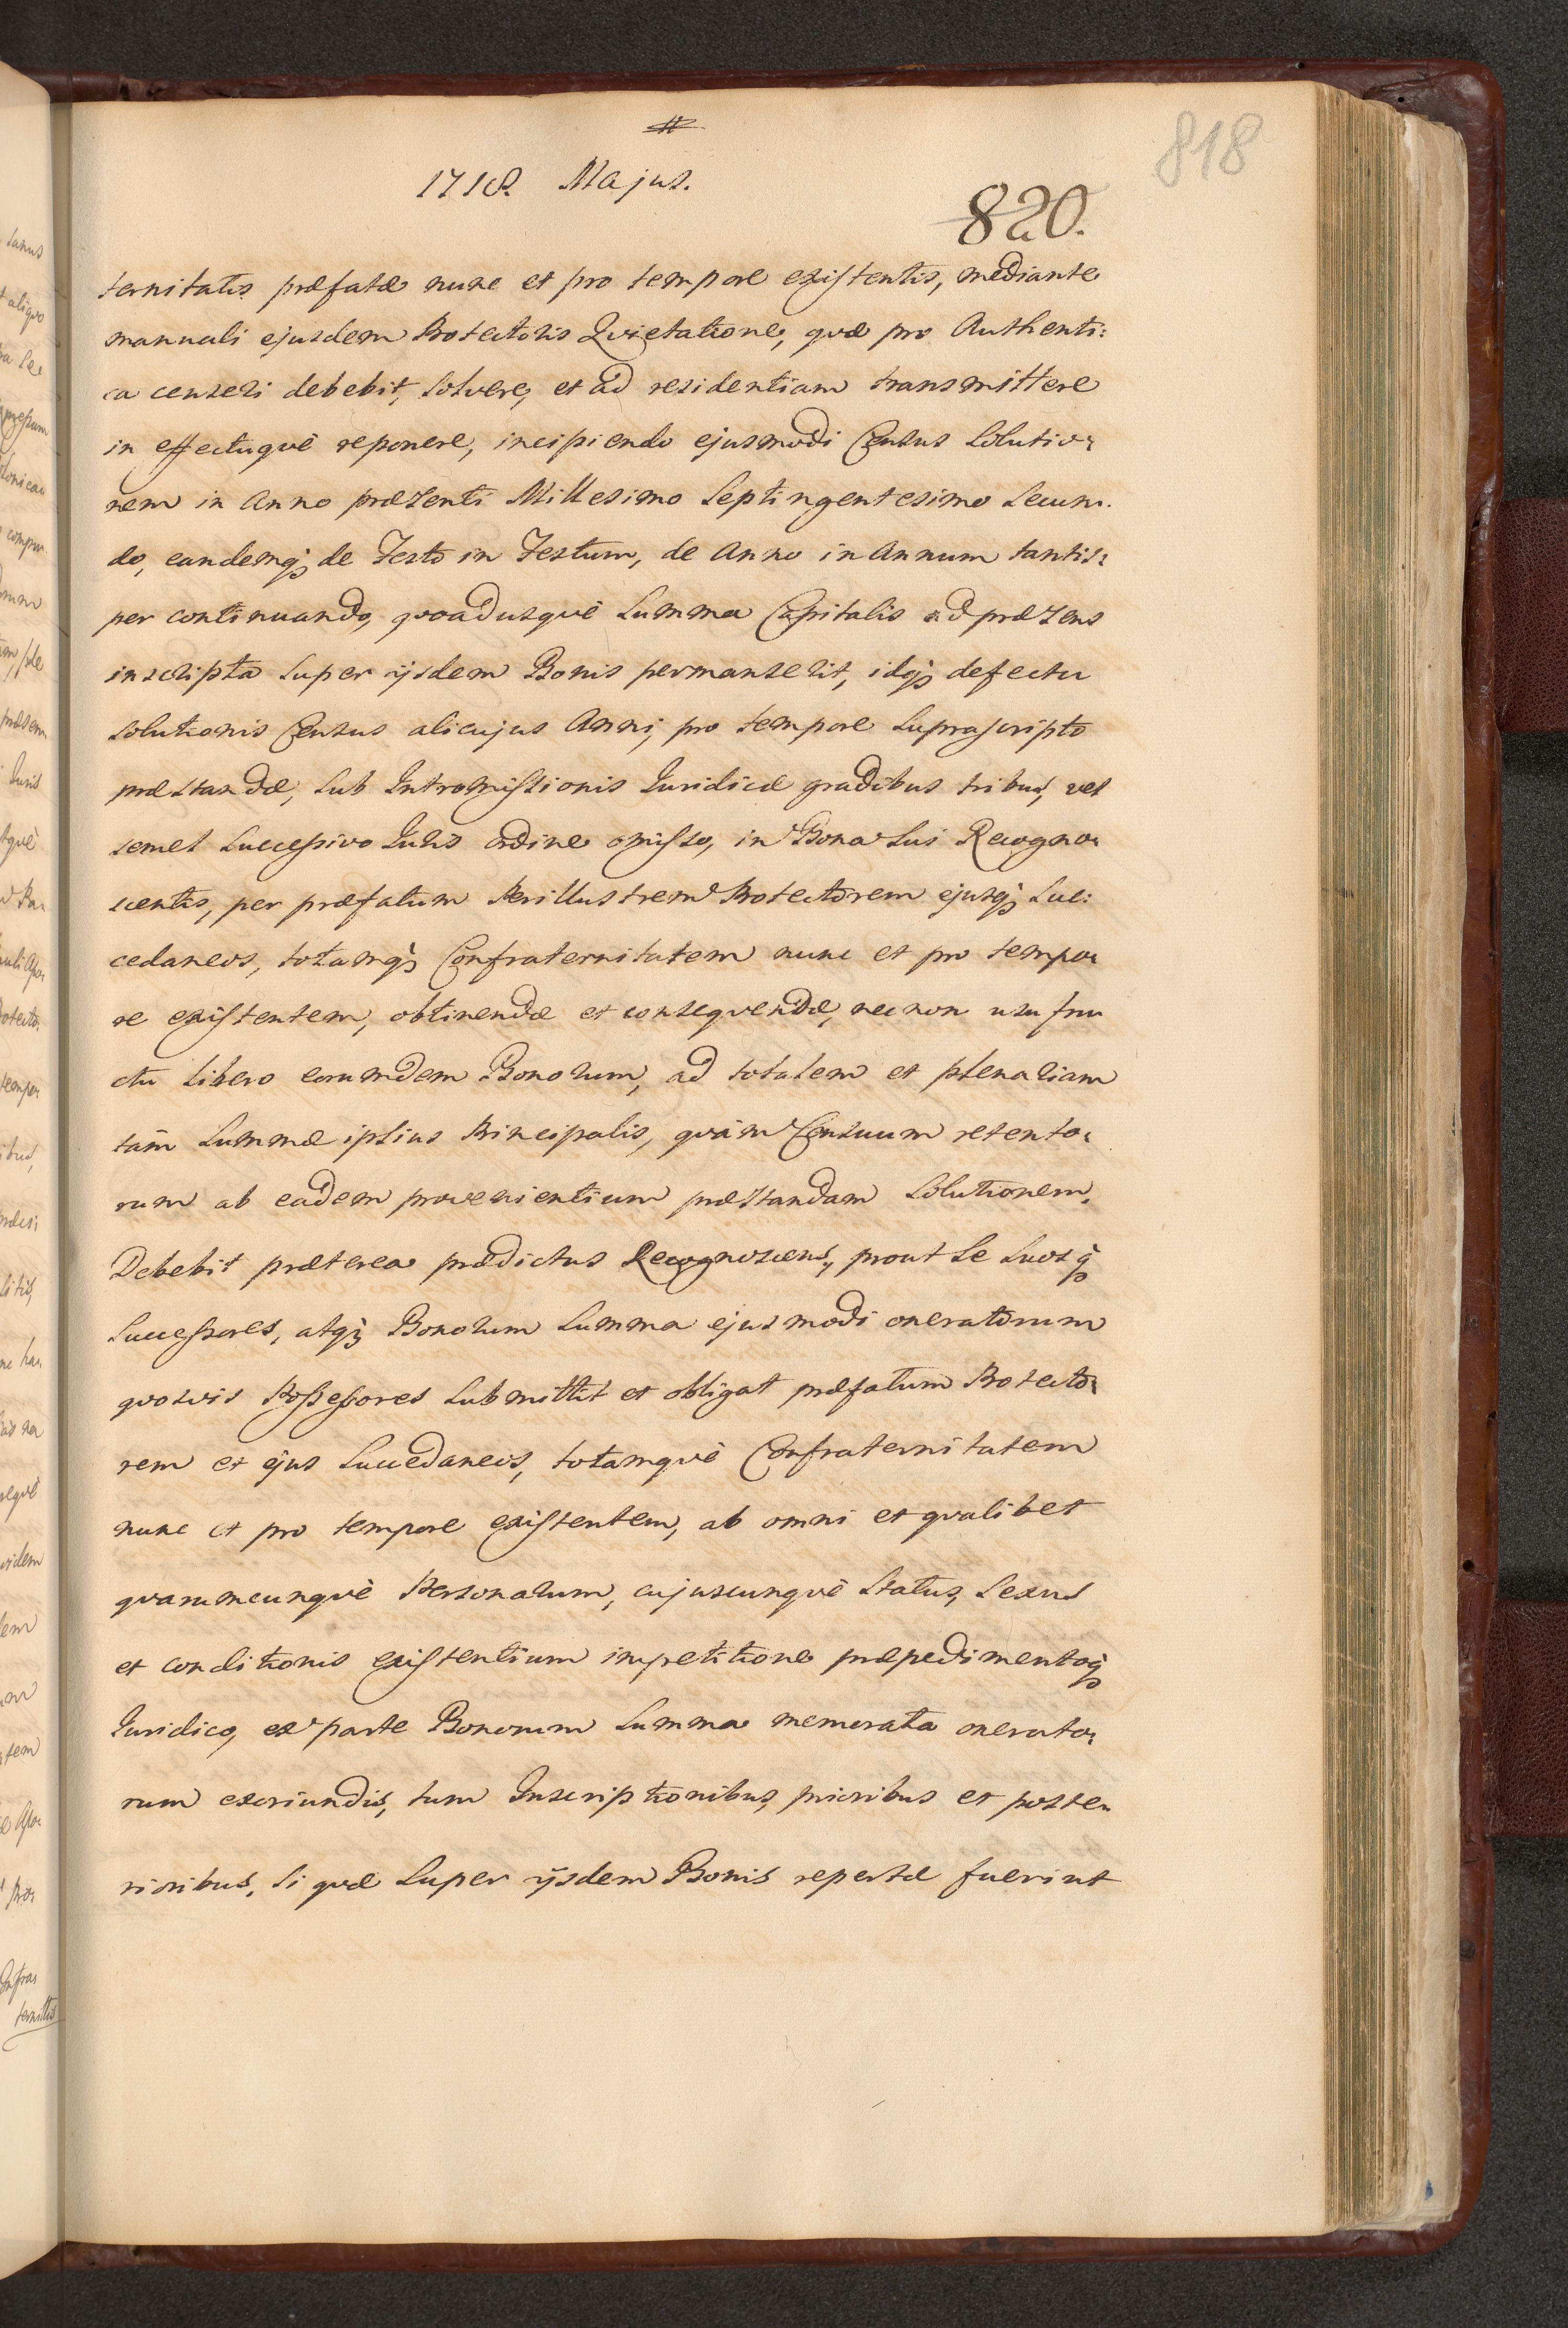 818
1718. Majus.
820.
ternitatis præfatæ nunc et pro tempore existentis, mediante
manuali ejusdem Protectoris Qvietatione, qvæ pro Authenti:
ca censeri debebit, solvere, et ad residentiam transmittere
in effectuqvè reponere, incipiendo ejusmodi Census Solutio:
nem in Anno præsenti Millesimo Septingentesimo Secun:
do, eandemq; de Festo in Festum, de Anno in Annum tantis:
per continuando, qvoadusqvè Summa Capitalis ad præsens
inscripta super ijsdem Bonis permanserit, idq; defectu
solutionis Census alicujus Anni, pro tempore suprascripto
præstandæ, sub Intromissionis Juridicæ gradibus tribus, vel
semel Successivo Juris ordine omisso, in Bona sui Recogno:
scentis, per præfatum Perillustrem Protectorem ejusq; Suc:
cedaneos, totamq; Confraternitatem nunc et pro tempo:
re existentem, obtinendæ et conseqvendæ, nec non usu fru
ctu libero eorumdem Bonorum, ad totalem et plenariam
tàm Summæ ipsius Principalis, qvàm Censuum retento:
rum ab eadem provenientium præstandam Solutionem.
Debebit præterea prædictus Recognoscens, prout se suosq;
Successores, atq; Bonorum Summa ejusmodi oneratorum
qvosvis Possessores submittit et obligat præfatum Protecto:
rem et ejus Succedaneos, totamqvè Confraternitatem
nunc et pro tempore existentem, ab omni et qvalibet
qvarumcunqvè Personarum, cujuscunqvè Status, Sexus
et conditionis existentium impetitione præpedimentoq;
Juridico, ex parte Bonorum Summa memorata onerato:
rum exoriundis, tum Inscriptionibus, prioribus et poste:
rioribus, si qvæ super ijsdem Bonis repertæ fuerint